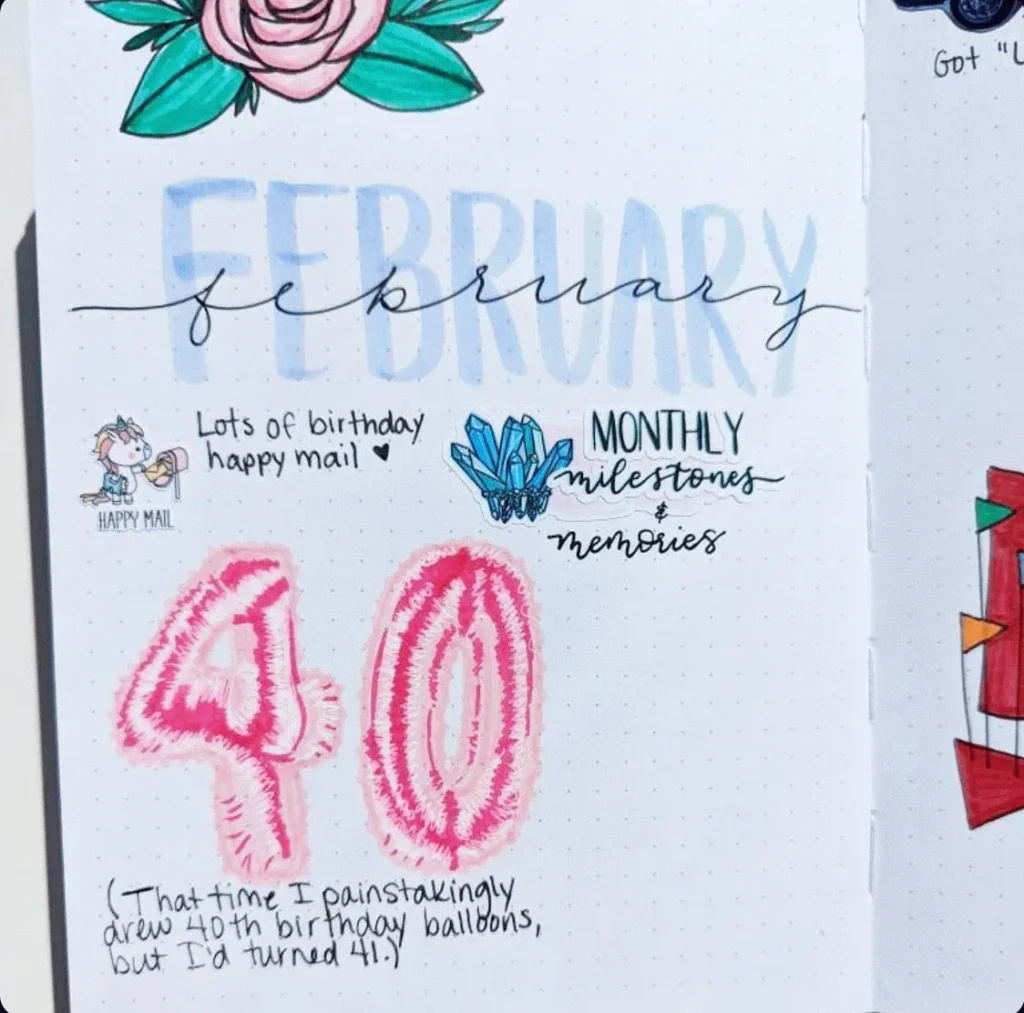 Got "L
FEBRUARY
february
Lots of birthday
happy mail ♥
HAPPY MAIL
MONTHLY
milestones
&
memories
40
(That time I painstakingly
drew 40th birthday balloons,
but I'd turned 41.)